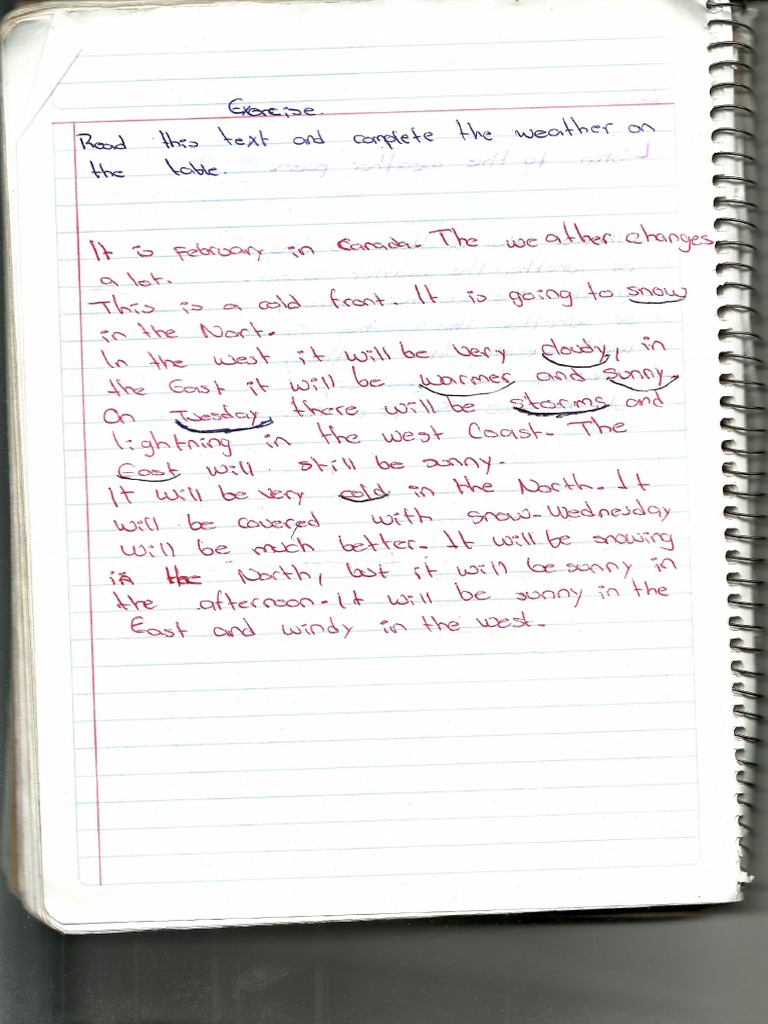 Exercise.
Read this text and complete the weather on
the table.
It is february in Canada. The weather changes
a lot.
This is a cold front. It is going to snow
in the Nort.
In the west it will be very cloudy, in
the East it will be warmer and sunny.
On Tuesday, there will be storms and
lightning in the west Coast. The
East will still be sunny.
It will be very cold in the North. It
will be covered with snow. Wednesday
will be much better. It will be snowing
in the North, but it will be sunny in
the afternoon. It will be sunny in the
East and windy in the west.